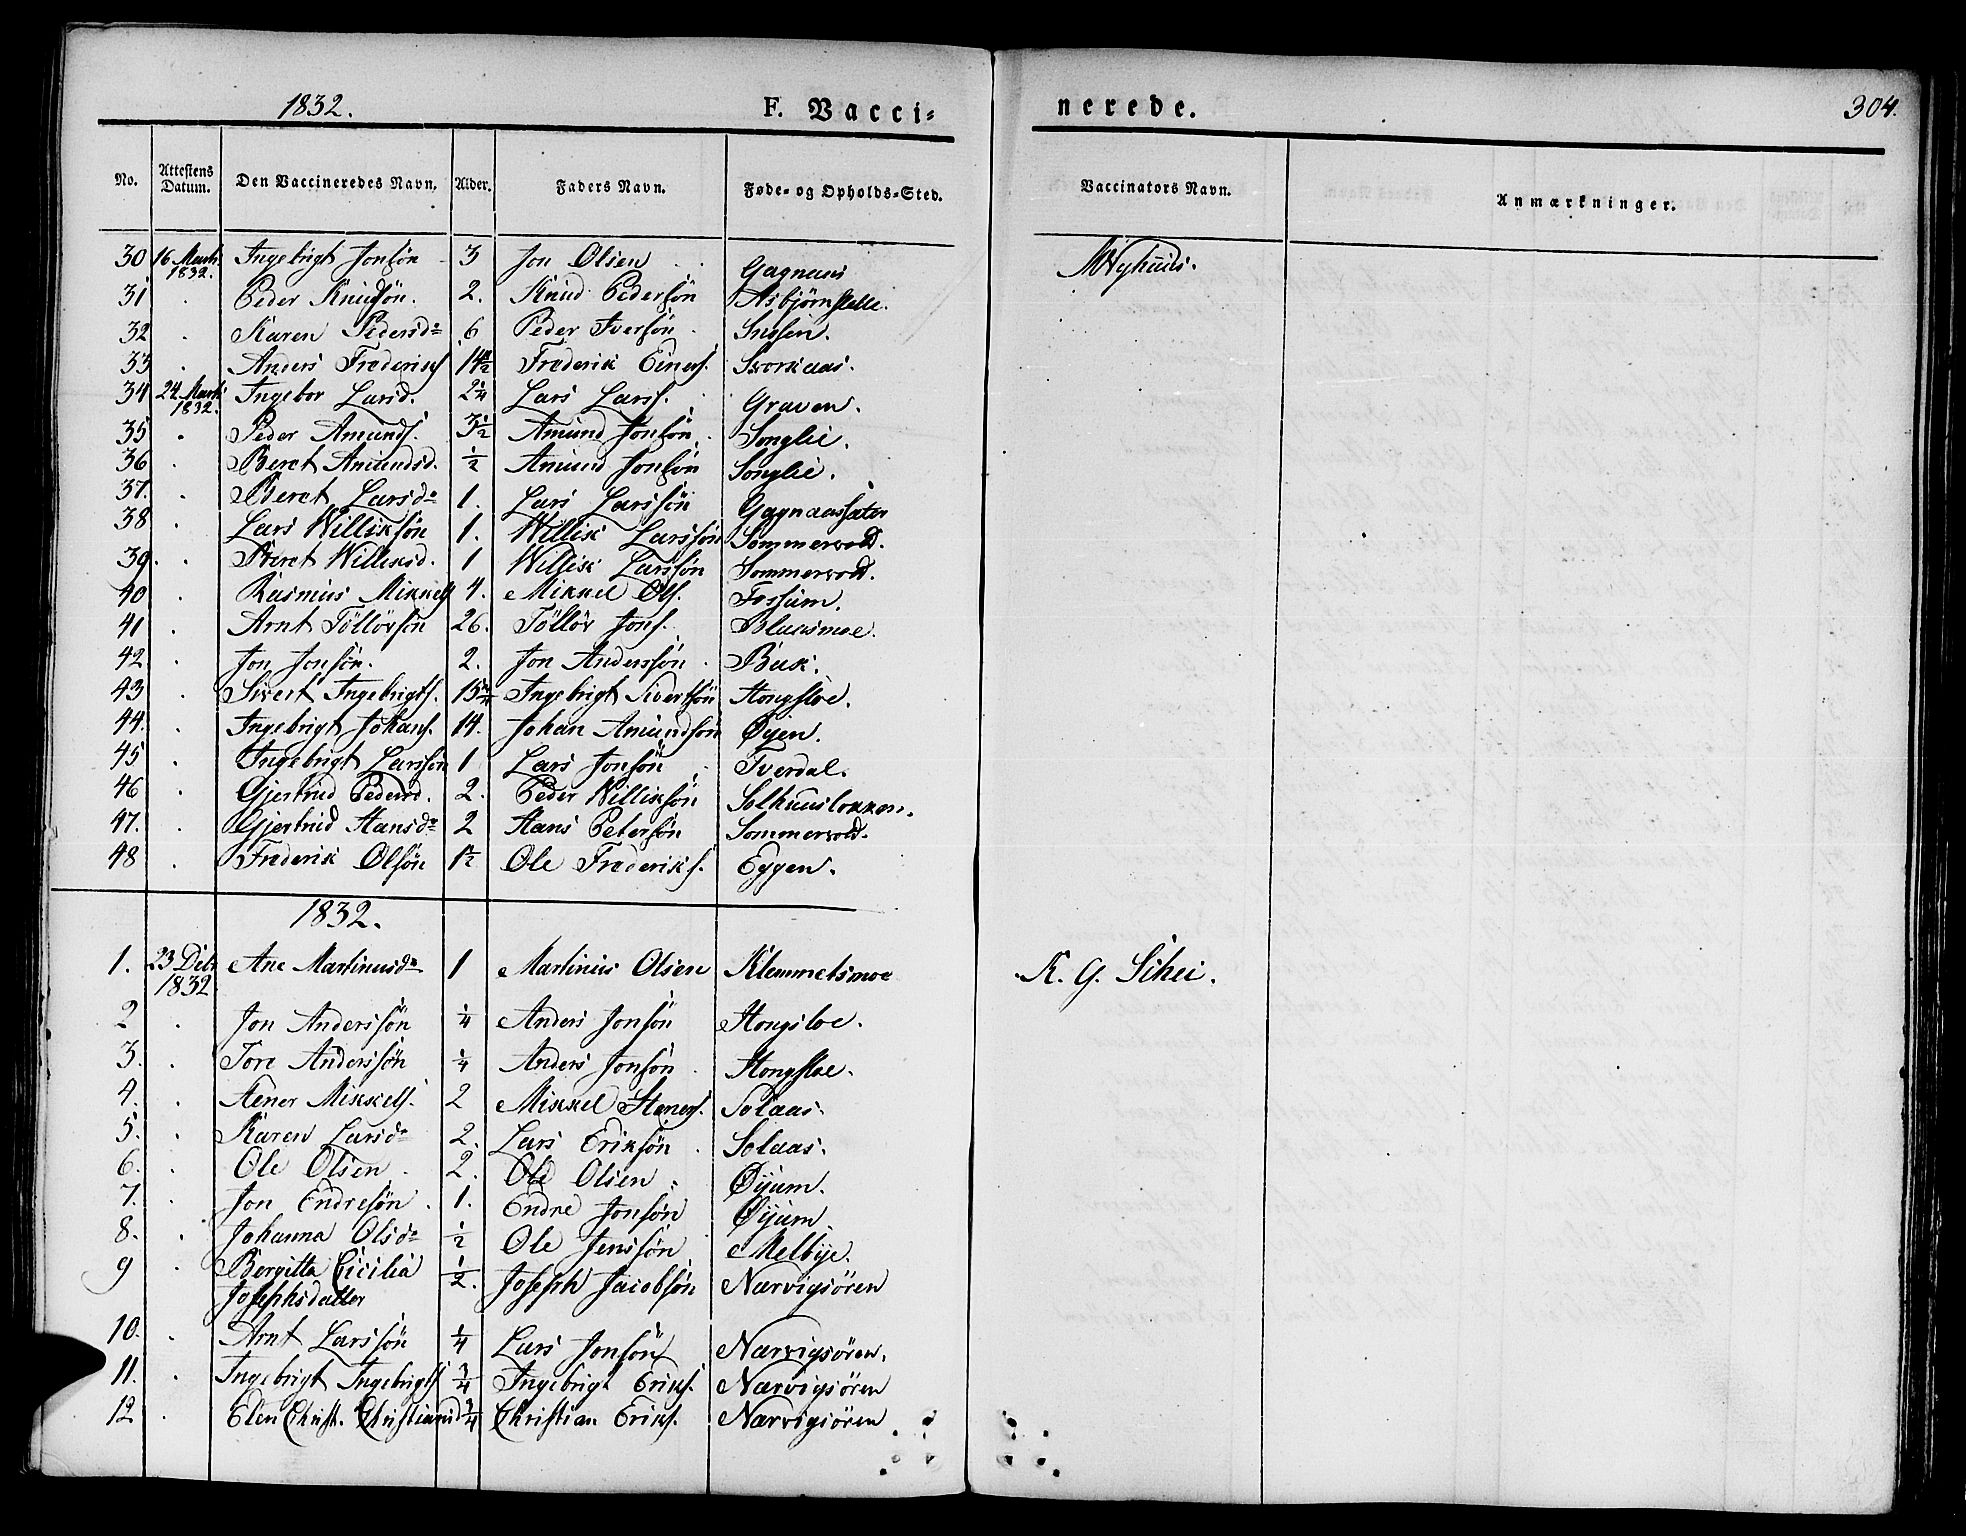 1832. F. Vacci= nerede. 304.
No. Attestens Datum. Den Vaccineredes Navn. Alder. Faders Navn. Føde- og Opholds-Sted. Vaccinators Navn. Anmærkninger.
30 16 Marti 1832. Ingebrigt Jonsön 3 Jon Olsen Gagnaas
31 . Peder Knudsön. 2. Knud Pedersön Asbjörnslette.
32 . Karen Pedersd. 6 Peder Iversön
33 . Anders Frederiks. 14½ Frederik Einers. Svorkaas.
34 24 Marti 1832. Ingebor Larsd. 2¼ Lars Larss. Graven.
35 . Peder Amunds. 3½ Amund Jonsön. Songlie.
36 . Beret Amundsd. ½ Amund Jonsön Songlie.
37. . Beret Larsd. 1. Lars Larssön Gagnaassæter
38 . Lars Williksön 1. Willik Larssön Sommervold.
39. . Beret Williksd. 1 Willik Larssön Sommervold.
40 . Rasmus Mikkels 4. Mikkel Ols. Fossum.
41 . Arnt Töllövsön 26. Töllöv Jons. Blaasmoe.
42 . Jon Jonsön. 2. Jon Anderssön Bak.
43 . Sivert Ingebrigts. Ingebrigt Sivertsön Hongsloe.
44. . Ingebrigt Johans. 14. Johan Amundsön Øyen.
45 . Ingebrigt Larssön 1 Lars Jonsön Tverdal.
46 . Gjertrud Pedersd. 2. Peder Williksön Solhuusløkken.
47. . Gjertrud Hansd. 2 Hans Petersön Sommervold.
48 . Frederik Olsön 1½ Ole Frederiks. Eggen.
1832.
1. 23 Debr 1832 Ane Martinusd. 1 Martinus Olsen Klemmetsmoe K. G. Sihei.
2 . Jon Anderssön ¼ Anders Jonsön Hongsloe.
3. . Tore Anderssön ¼ Anders Jonsön Hongsloe.
4. . Mikkels. 2 Mikkel Solaas.
5. . Karen Larsd. 2. Lars Eriksön Solaas.
6. . Ole Olsen 2. Ole Olsen Øyum.
7. . Jon Endresön 1. Endre Jonsön Øyum.
8. . Johanna Olsd. ½ Ole Jenssön Melbye.
9 . Bergitta Cicilia ½. Joseph Jacobsön Nærvigsören
Josephsdatter
10. . Arnt Larssön ¼ Lars Jonsön Nærvigsören.
11. . Ingebrigt Ingebrigts ¾ Ingebrigt Eriks. Nærvigsören
12 . Elen Christ. Christiansd ¾ Christian Eriks. Nærvigsören